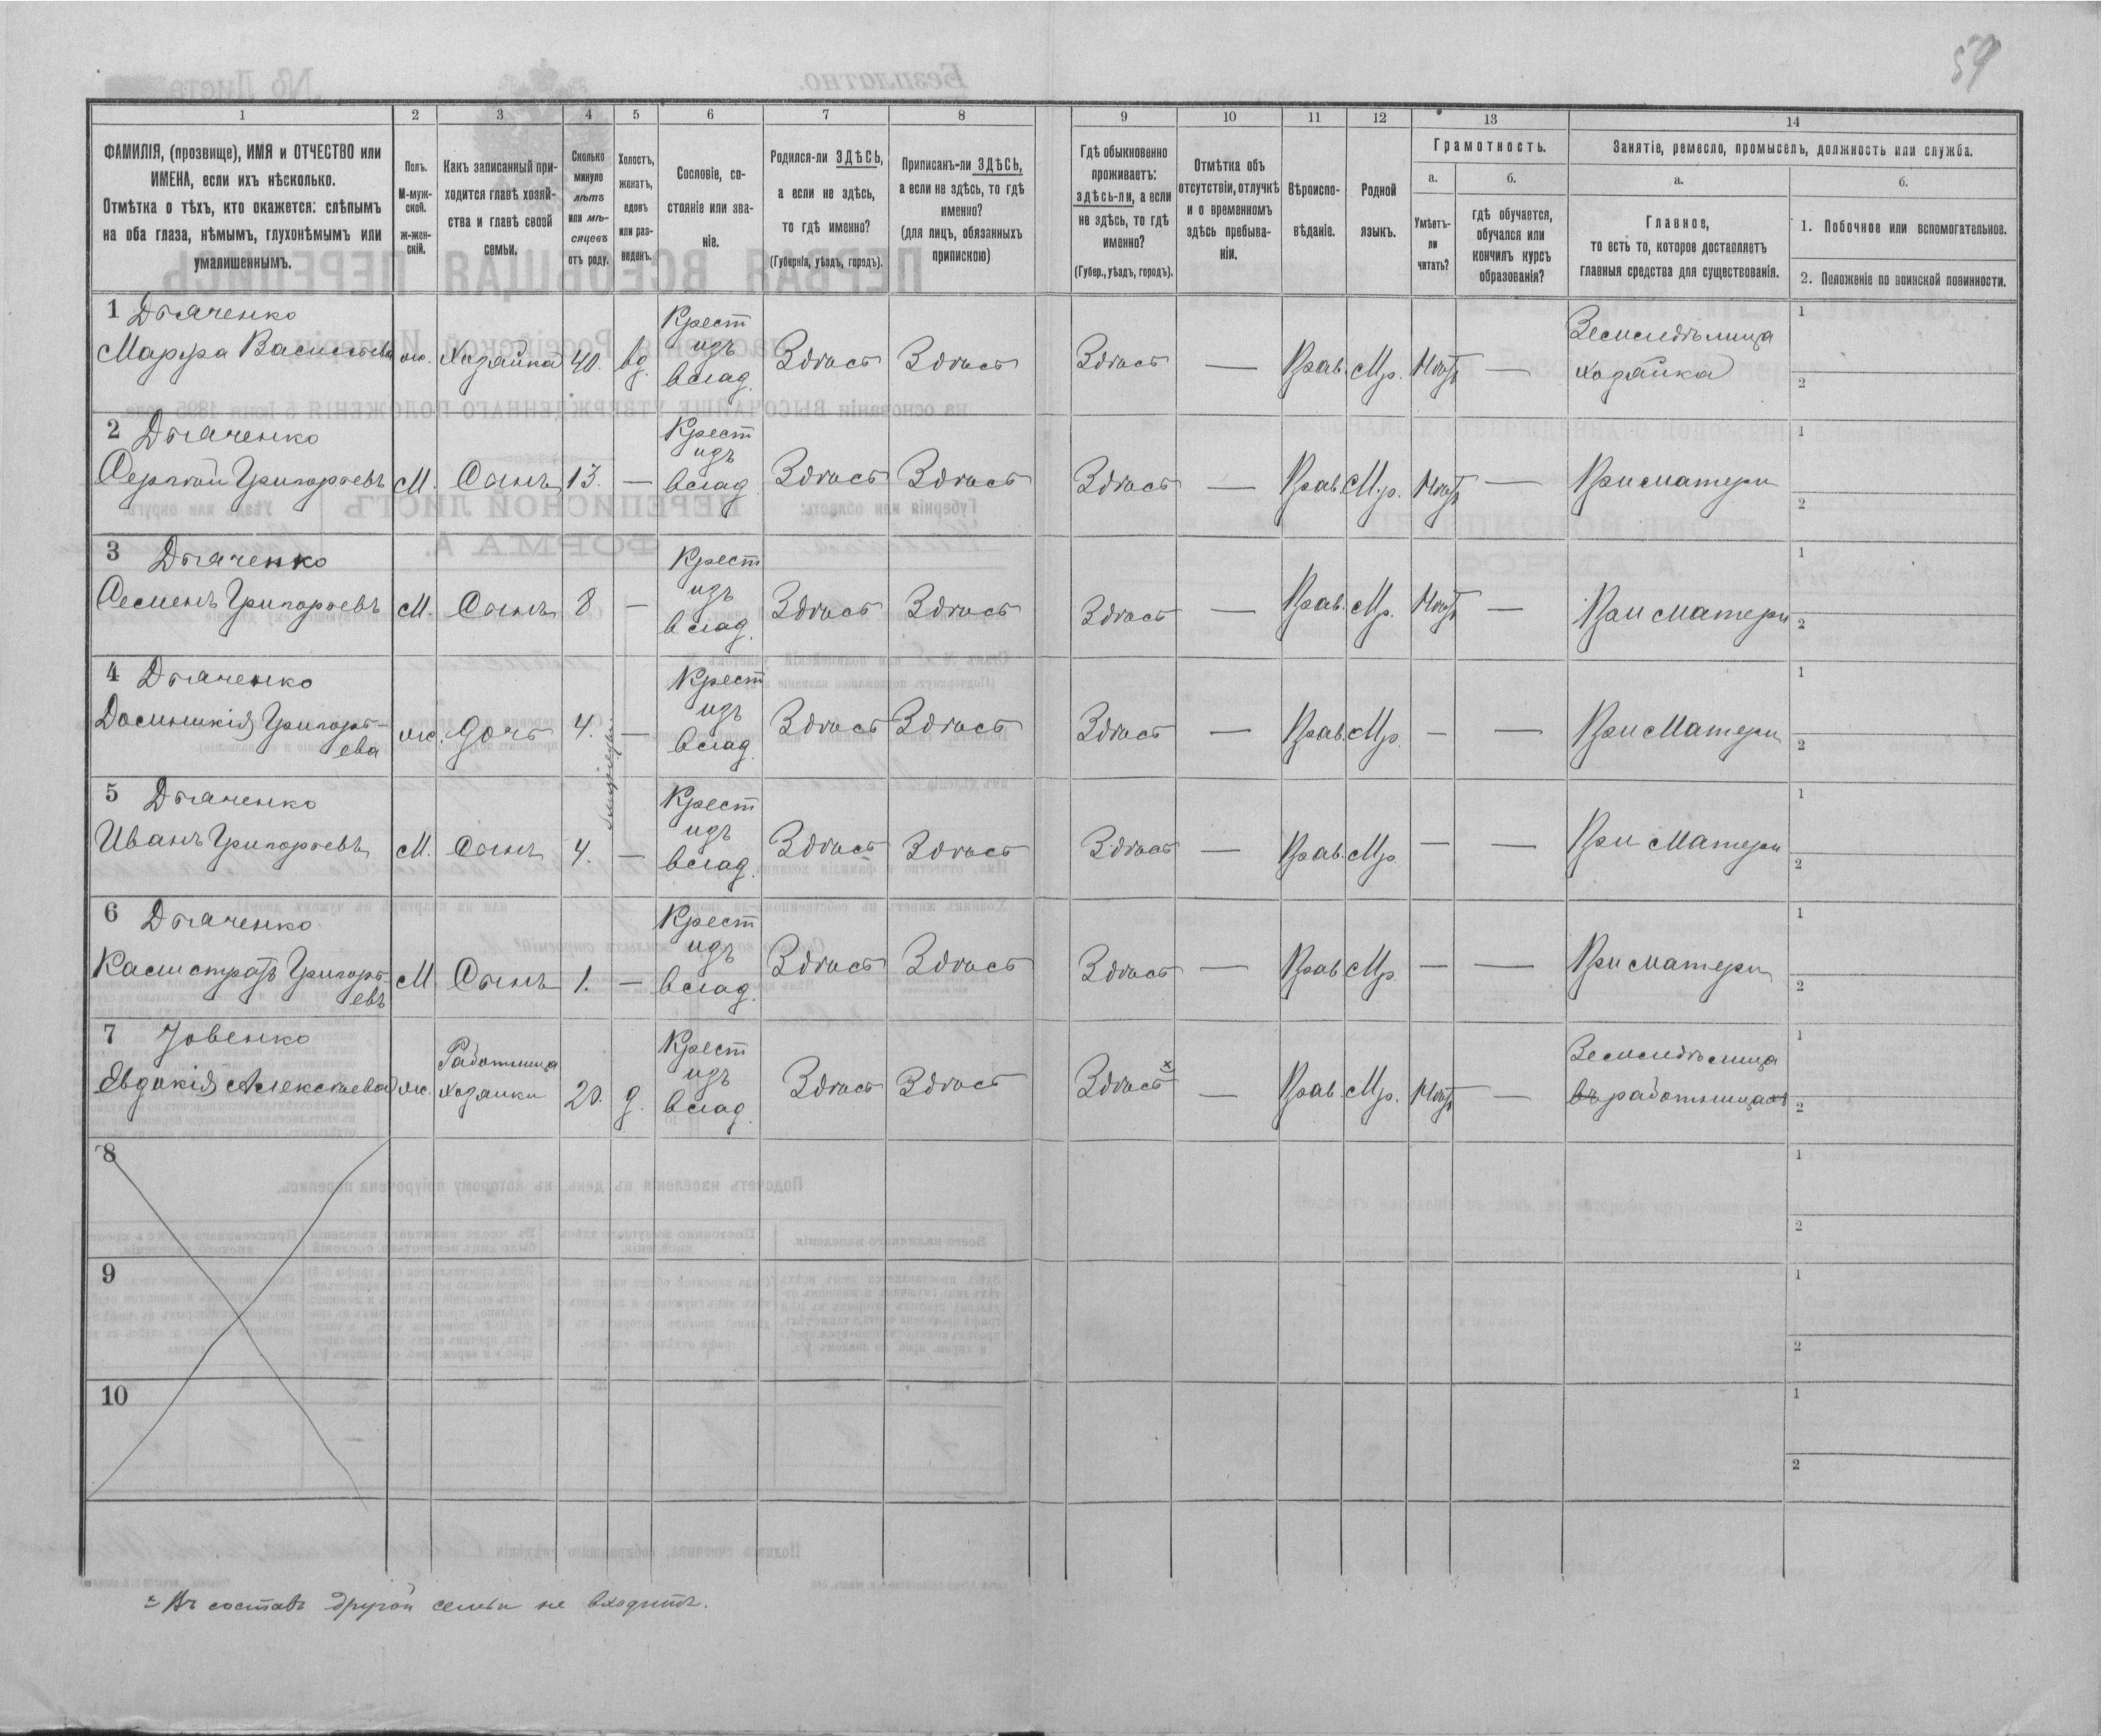 59
1 2 3 4 5 6 7 8 9 10 11 12 13 14
ФАМИЛІЯ, (прозвище), ИМЯ и ОТЧЕСТВО или
ИМЕНА, если ихъ нѣсколько.
Отмѣтка о тѣхъ, кто окажется: слѣпымъ
на оба глаза, нѣмымъ, глухонѣмымъ или
умалишеннымъ.
Полъ.
М-муж-
ской.
ж-жен-
скій.
Какъ записанный при-
ходится главѣ хозяй-
ства и главѣ своей
семьи.
Сколько
минуло
лѣтъ
или мѣ-
сяцевъ
отъ роду.
Холостъ,
женатъ,
вдовъ
или раз-
веденъ.
Сословіе, со-
стояніе или зва-
ніе.
Родился-ли ЗДѢСЬ,
а если не здѣсь,
то гдѣ именно?
(Губернія, уѣздъ, городъ).
Приписанъ-ли ЗДѢСЬ,
а если не здѣсь, то гдѣ
именно?
(для лицъ, обязанныхъ
припискою)
Гдѣ обыкновенно
проживаетъ:
здѣсь-ли, а если
не здѣсь, то гдѣ
именно?
(Губер., уѣздъ, городъ).
Отмѣтка объ
отсутствіи, отлучкѣ
и о временномъ
здѣсь пребыва-
ніи.
Вѣроиспо-
вѣданіе.
Родной
языкъ.
Грамотность.
а.
Умѣетъ-
ли
читать?
б.
гдѣ обучается,
обучался или
кончилъ курсъ
образованія?
Занятіе, ремесло, промыселъ, должность или служба.
а.
Главное,
то есть то, которое доставляетъ
главныя средства для существованія.
б.
1. Побочное или вспомогательное.
2. Положеніе по воинской повинности.
1 Дьяченко Крест Земледѣлица 1
Марфа Васильева ж. Хозяйка 40. вд. изъ Здѣсь Здѣсь Здѣсь — Прав. Мр. Нѣтъ — хозяйка 2
влад.
2 Дьяченко Крест 1
Сергѣй Григорьевъ М. Сынъ 13. — изъ Здѣсь Здѣсь Здѣсь — Прав. Мр. Нѣтъ — При матери 2
влад.
3 Дьяченко Крест 1
Семенъ Григорьевъ М. Сынъ 8 — изъ Здѣсь Здѣсь Здѣсь — Прав. Мр. Нѣтъ — При матери 2
влад.
4 Дьяченко Крест 1
Доминикія Григорь- ж. дочь 4. — изъ Здѣсь Здѣсь Здѣсь — Прав. Мр. — — При Матери 2
ева влад.
5 Дьяченко Крест 1
Иванъ Григорьевъ М. Сынъ 4. — изъ Здѣсь Здѣсь Здѣсь — Прав. Мр. — — При Матери 2
влад.
6 Дьяченко Крест 1
Калистратъ Григорь- М Сынъ 1. — изъ Здѣсь Здѣсь Здѣсь — Прав. Мр — — При матери 2
евъ влад.
7 Работница Крест Земледѣлица 1
Евдокія Алексѣева ж. хозяйки 20. д. изъ Здѣсь Здѣсь Здѣсь × — Прав. Мр. Нѣтъ — въ работницахъ 2
влад.
8 1
2
9 1
2
10 1
2
× Въ составъ другой семьи не входитъ.